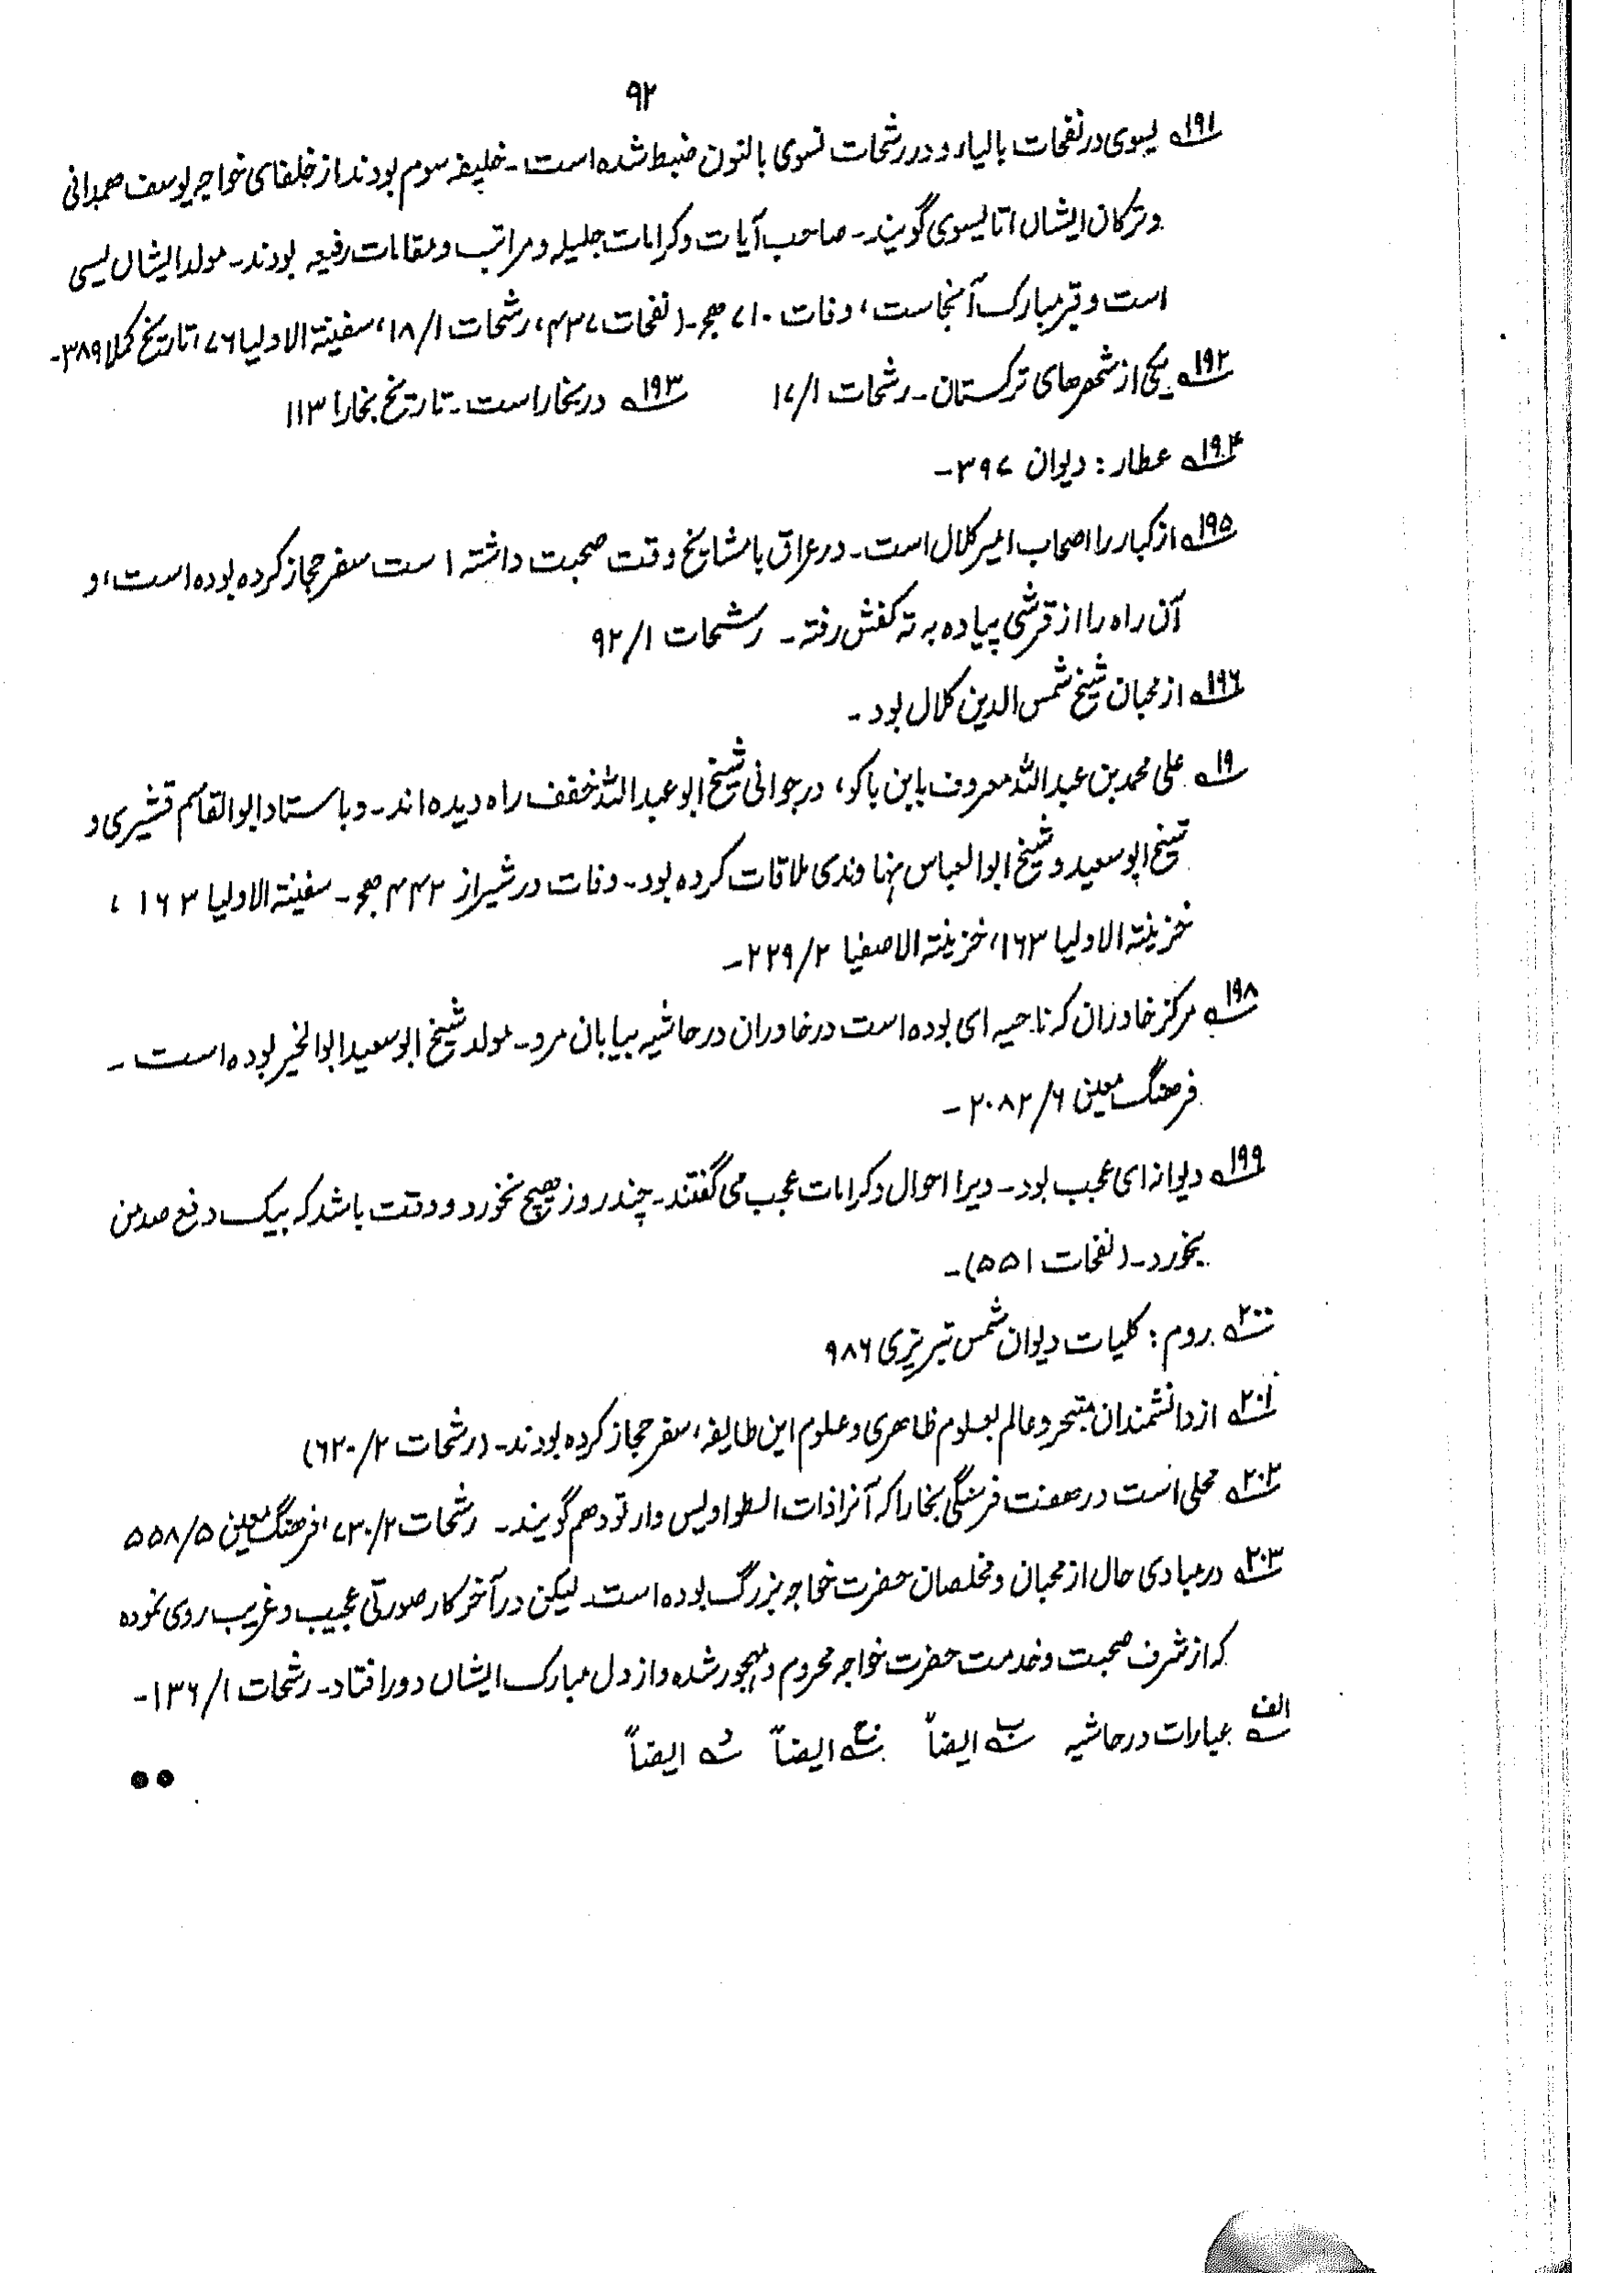 ۹۲
۱۹۱؎ یسوی در نفحات بالیاء و در رشحات نسوی بالنون ضبط شده است ـ خلیفه سوم بودند از خلفای خواجه یوسف همدانی
و ترکان ایشان اتا لیسوی گویند ـ صاحب آیات و کرامات جلیله و مراتب و مقامات رفیعه بودند ـ مولد ایشان لیسی
است و قبر مبارک آنجاست، وفات ۷۱۰ هجر ـ (نفحات ۴۳۷، رشحات ۱۸/۱، سفینة الاولیا ۷۶، تاریخ کملا ۳۸۹ـ
۱۹۲؎ یکی از شهرهای ترکستان ـ رشحات ۱۷/۱ ۱۹۳؎ در بخارا است ـ تاریخ بخارا ۱۱۳
۱۹۴؎ عطار : دیوان ۳۹۷ ـ
۱۹۵؎ از کبار را اصحاب امیر کلال است ـ در عراق با مشایخ وقت صحبت داشته است سفر حجاز کرده بوده است، و
آن راه را از قرشی پیاده به ته کفش رفته ـ رشحات ۹۲/۱
۱۹۶؎ از محبان شیخ شمس الدین کلال بود ـ
۱۹؎ علی محمد بن عبدالله معروف باین باکو، در جوانی شیخ ابو عبدالله خفف راه دیده اند ـ و باستاد ابوالقاسم قشیری و
شیخ ابوسعید و شیخ ابوالعباس نهاوندی ملاقات کرده بود ـ وفات در شیراز ۴۴۲ هجر ـ سفینة الاولیا ۱۶۳ ،
خزینة الاولیا ۱۶۳، خزینة الاصفیا ۲۲۹/۲ ـ
۱۹۸؎ مرکز خاوزان که ناحیه ای بوده است در خاوران در حاشیه بیابان مرو ـ مولد شیخ ابوسعید ابوالخیر بوده است ـ
فرهنگ معین ۲۰۸۲/۶ ـ
۱۹۹؎ دیوانه ای عجب بود ـ ویرا احوال و کرامات عجب می گفتند ـ چند روز هیچ نخورد و وقت باشد که بیک دفع صد من
بخورد ـ (نفحات ۵۵۱) ـ
۲۰۰؎ روم : کلیات دیوان شمس تبریزی ۹۸۶
۲۰۱؎ از دانشمندان متبحر و عالم بعلوم ظاهری و علوم این طایفه، سفر حجاز کرده بودند ـ (رشحات ۶۲۰/۲)
۲۰۲؎ محلی است در هفت فرسنگی بخارا که آنرا ذات الطواویس وارقود هم گویند ـ رشحات ۷۳۰/۲، فرهنگ معین ۵۵۸/۵
۲۰۳؎ در مبادی حال از محبان و مخلصان حضرت خواجه بزرگ بوده است ـ لیکن در آخر کار صورتی عجیب و غریب روی نموده
که از شرف صحبت و خدمت حضرت خواجه محروم و مهجور شده و از دل مبارک ایشان دور افتاد ـ رشحات ۱۳۶/۱ ـ
الف؎ عبارات در حاشیه ب؎ ایضاً ج؎ ایضاً د؎ ایضاً